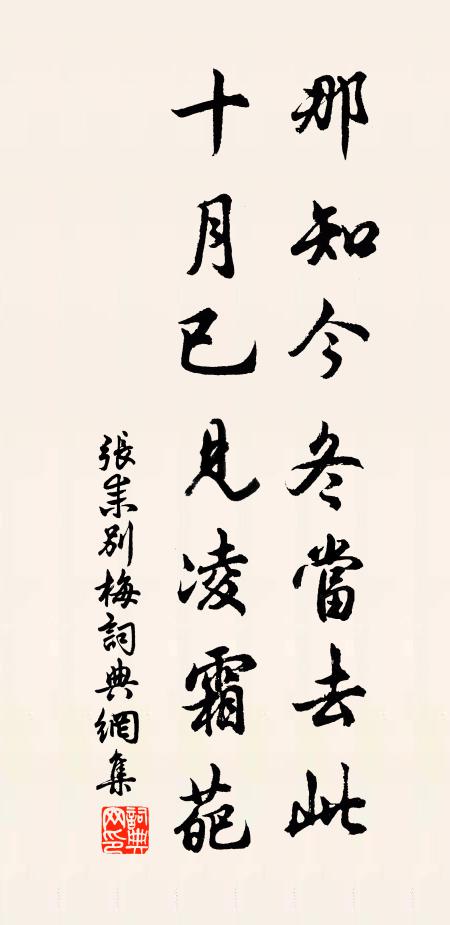 那知今冬當去此
十月已見凌霜葩
張耒別梅詞典網集
詞典網印